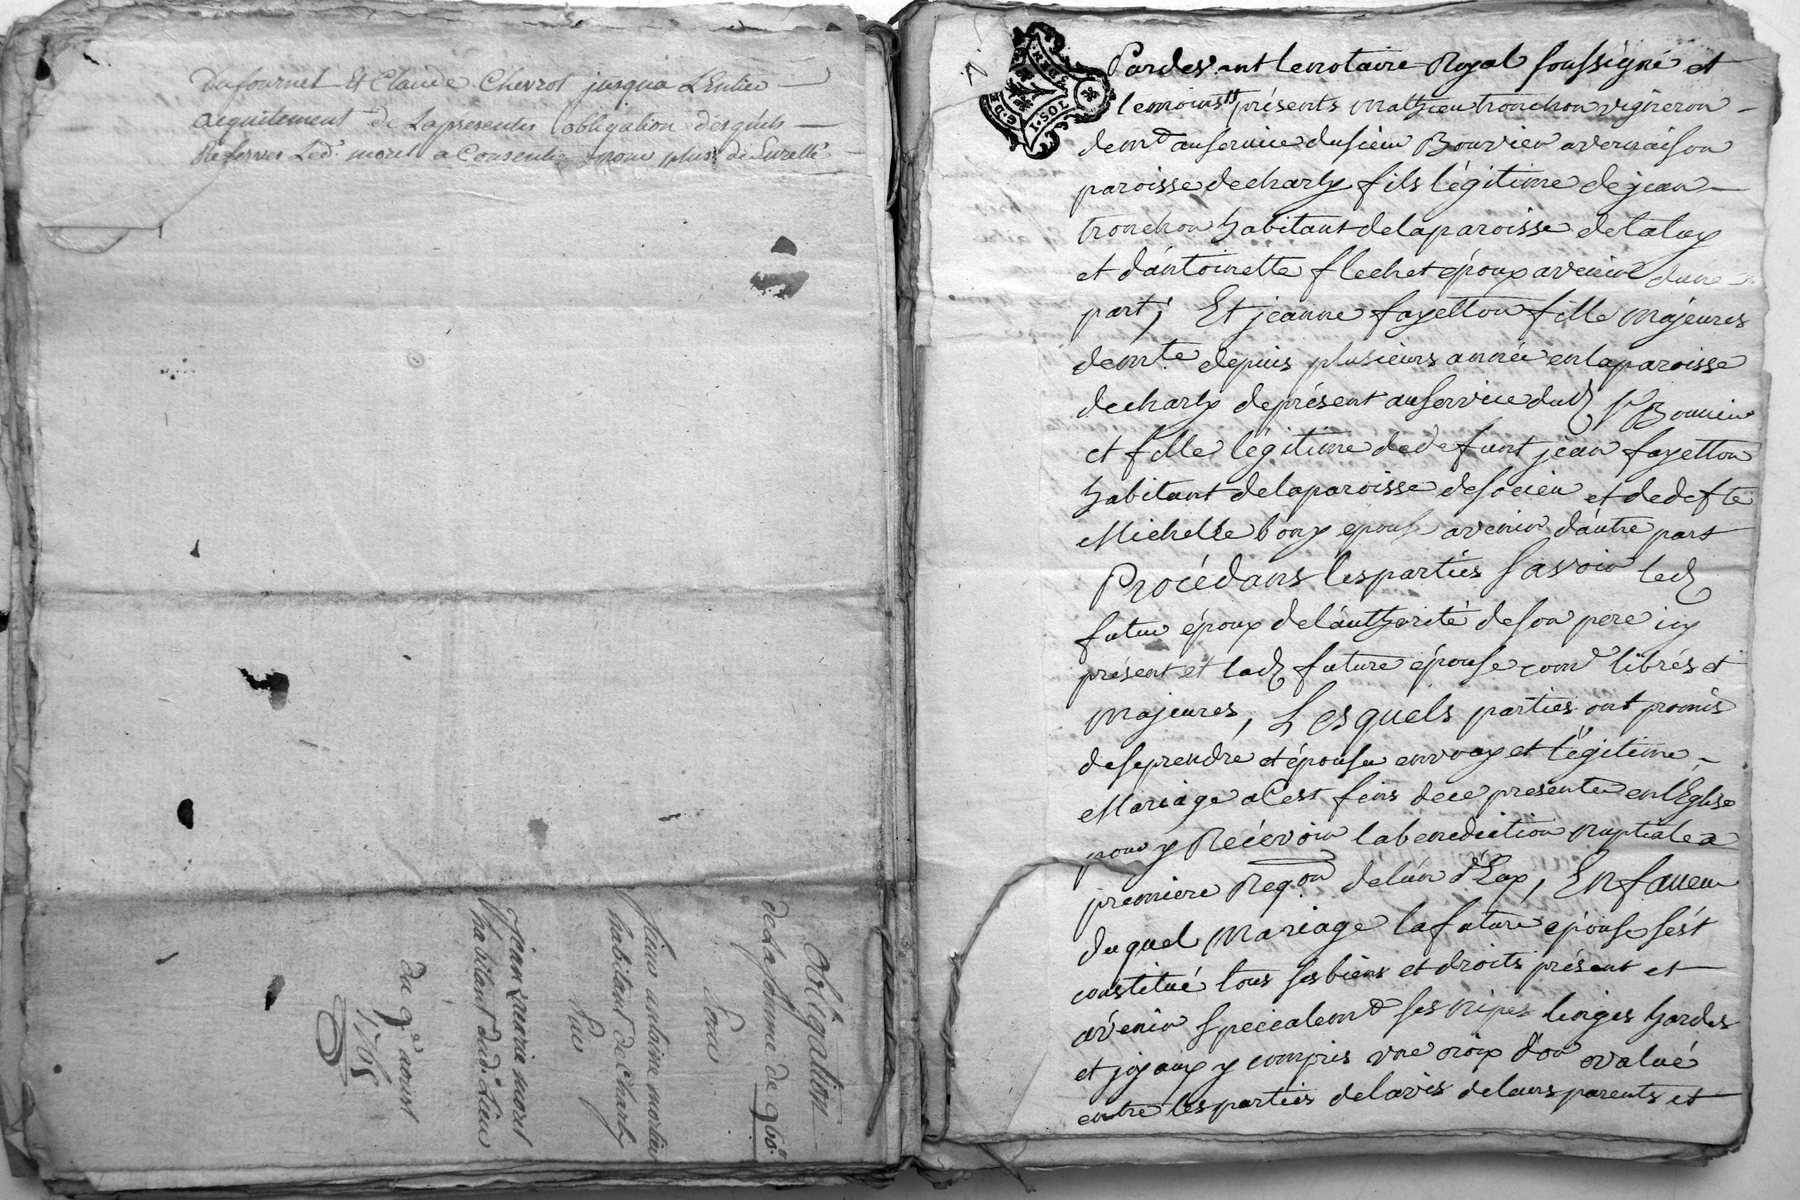 Dufournel et Claude Chevrot jusqua L'Entier
acquitement de La presente obligation desquels
Reserves Led. morel a Consenti pour plus de Surette
Oblig.on
de La somme de 960#
Pour
sieur antoine mortier
habitant de Charly
Sur
jean Marie morel
habitant dud. Lieu
du 9e aoust
1765
Pardevant le notaire Royal soussigné et
temoins présents mathieu tronchon vigneron
demt au service du sieur Bouvier a vernaison
paroisse de charly fils légitime de jean
tronchon habitant de la paroisse de taluy
et d'antoinette flechet époux avenir d'une
part; Et jeanne fayetton fille majeures
demte depuis plusieurs année en la paroisse
de charly de présent au service dud Sr Bouvier
et fille légitime de defunt jean fayetton
habitant de la paroisse de socieu et de defte
Michelle bony epouse avenir d'autre part
Procédans les parties savoir led
futur époux de l'authorité de son pere icy
présent et lad future épouse comme librés et
majeures, Lesquels parties ont promis
de se prendre et épouser en vray et légitime
Mariage a Cest fins de ce presenter en l'Eglise
pour y Recevoir la benediction nuptiale a
premiere Reqon de l'un d'Eux, En faveur
duquel mariage la future epouse s'est
constitué tous ses biens et droits présent et
avenir specialemt ses nipes linges hardes
et joyaux y compris une croix d'or evalué
entre les parties de l'avis de leurs parents et